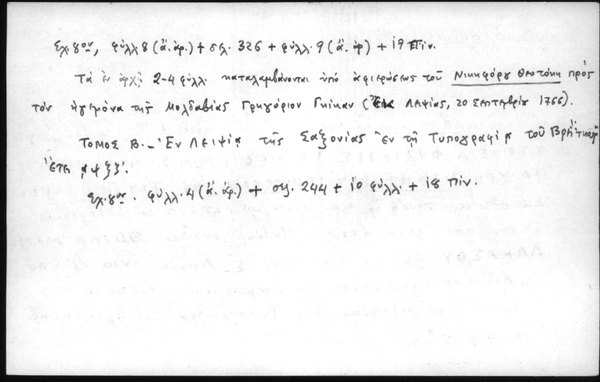 Σχ. 8ον, φύλλ. 8 (ἄ. ἀρ.) + σελ. 326 + φύλλ. 9 (ἄ. ἀρ) + 19 πίν.
Τὰ ἐν ἀρχῇ 2-4 φύλλ. καταλαμβάνονται ὑπὸ ἀφιερώσεως τοῦ Νικηφόρου Θεοτόκη πρὸς
τὸν ἡγεμόνα τῆς Μολδαβίας Γρηγόριον Γκίκαν (Λειψίας, 20 Σεπτεμβρίου 1766).
ΤΟΜΟΣ Β. - Ἐν Λειψίᾳ τῆς Σαξονίας Ἐν τῇ Τυπογραφίᾳ τοῦ
Ἔτει αψξζ'.
Σχ. 8ον. φύλλ. 4 (ἄ. ἀρ.) + σελ. 244 + 10 φύλλ. + 18 πίν.